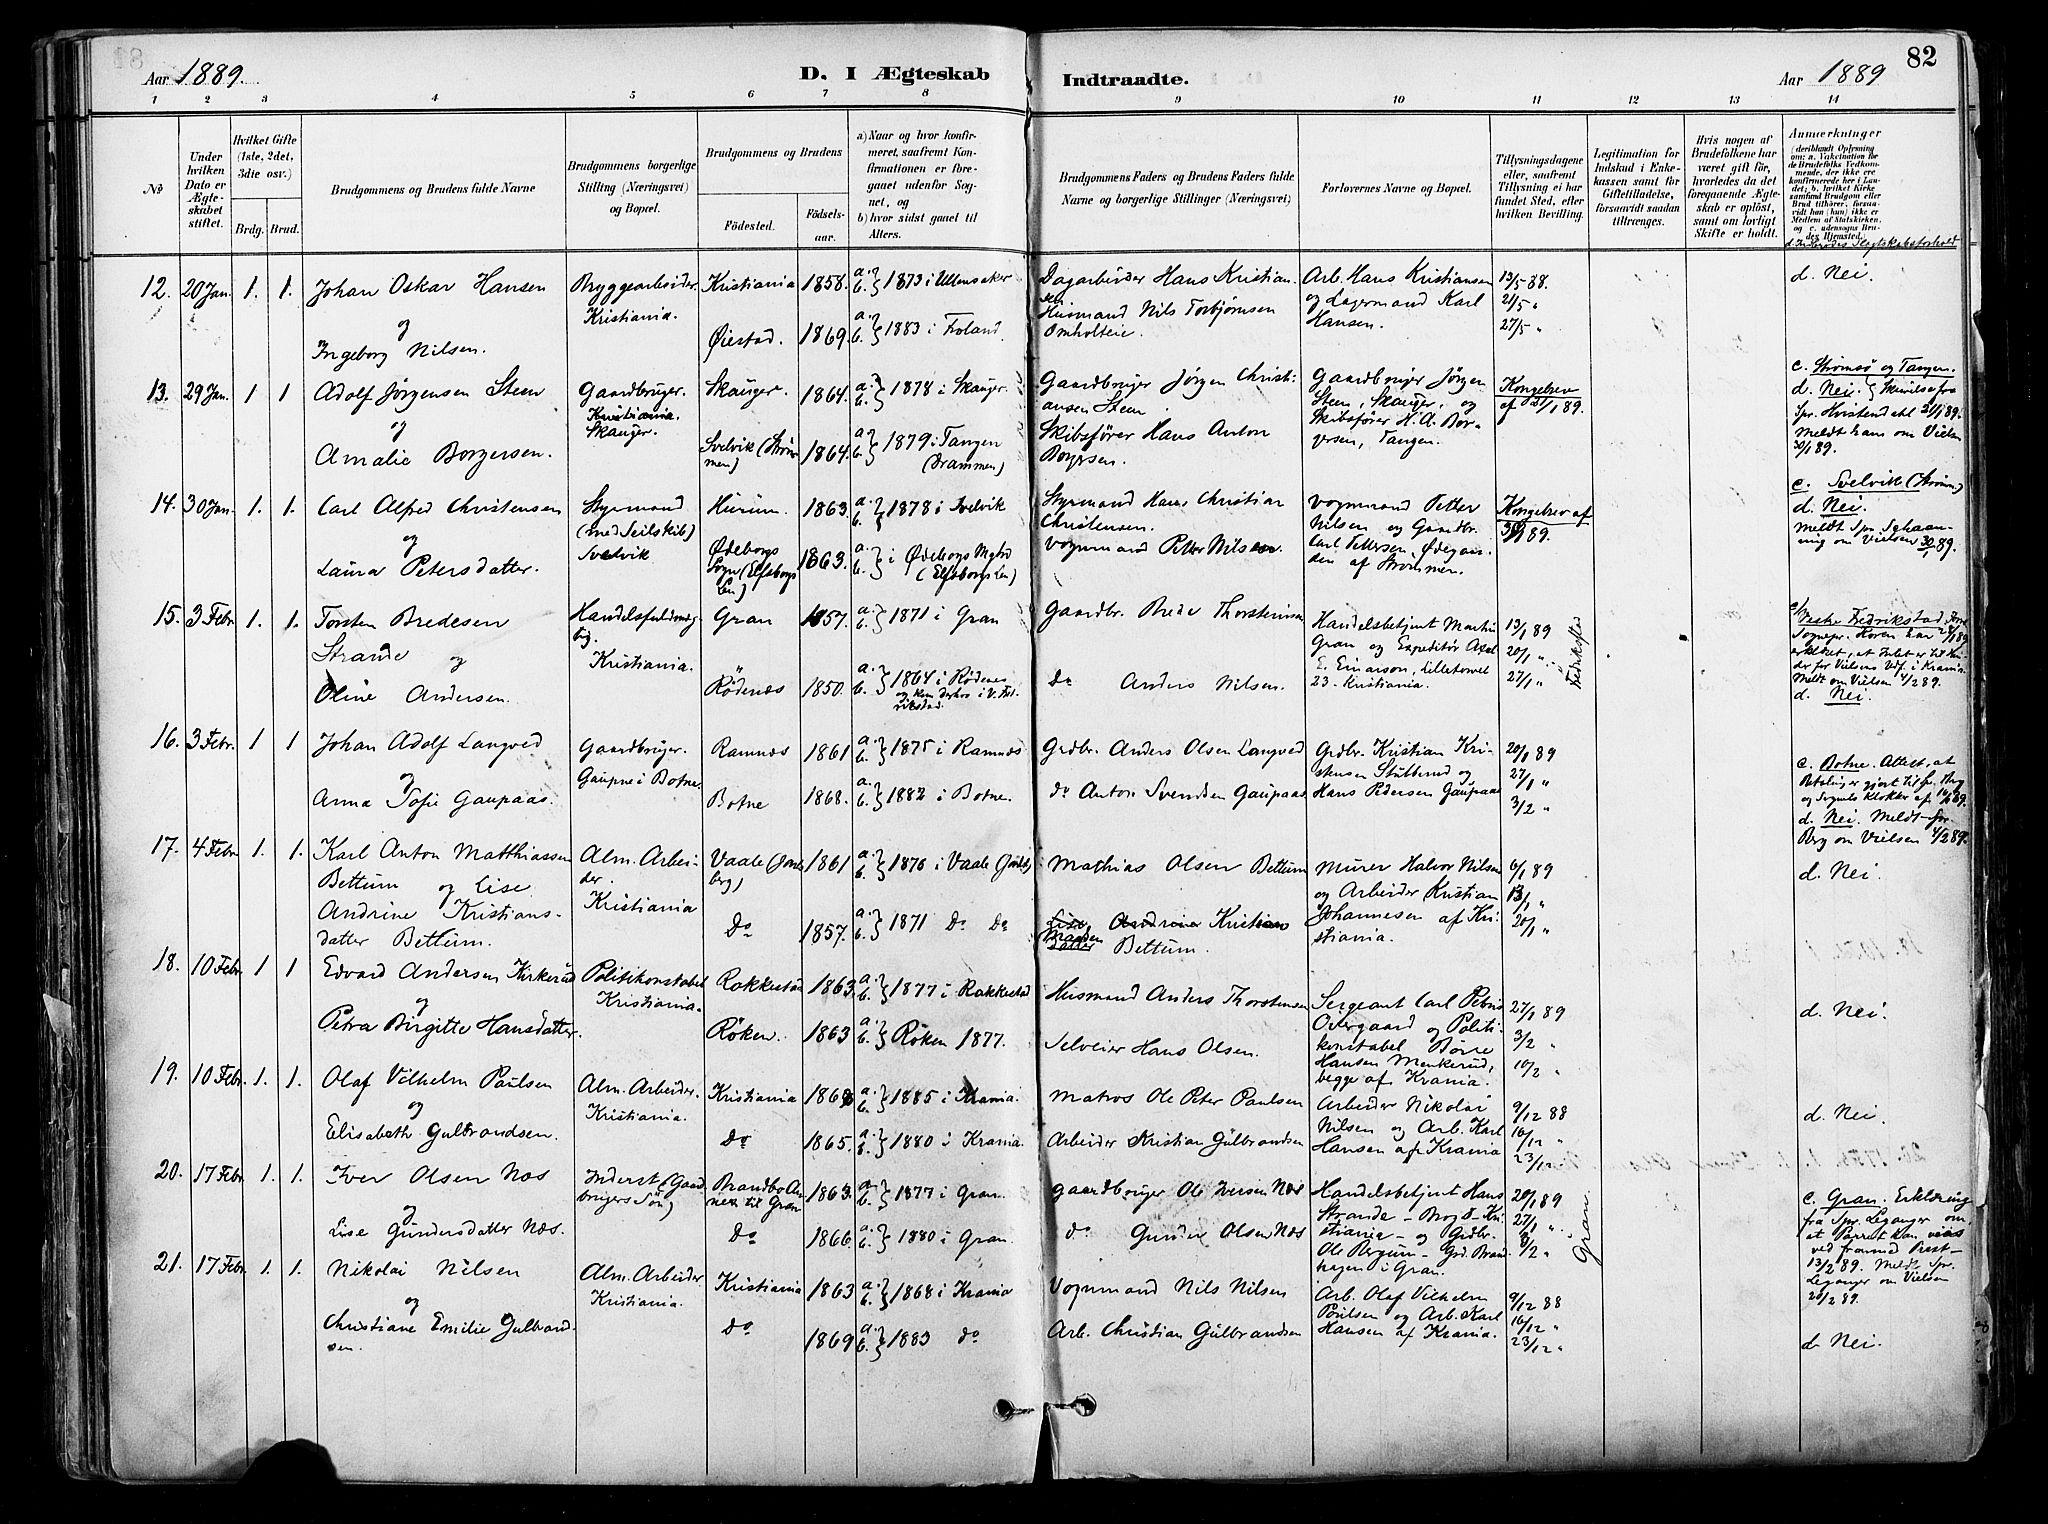 Aar 1889.
D. I Ægteskab
Indtraadte.
Aar 1889
82
1 2 3 4 5 6 7 8 9 10 11 12 13 14
No
Under hvilken Dato er Ægteskabet stiftet.
Hvilket Gifte (1ste, 2det, 3die osv.)
Brdg. Brud.
Brudgommens og Brudens fulde Navne
Brudgommens borgerlige Stilling (Næringsvei) og Bopæl.
Brudgommens og Brudens
Fødested.
Fødselsaar.
a) Naar og hvor konfirmeret, saafremt Konfirmationen er foregaaet udenfor Sognet, og
b) hvor sidst gaaet til Alters.
Brudgommens Faders og Brudens Faders fulde Navne og borgerlige Stillinger (Næringsvei)
Forlovernes Navne og Bopæl.
Tillysningsdagene eller, saafremt Tillysning ei har fundet Sted, efter hvilken Bevilling.
Legitimation for Indskud i Enkekassen samt for Giftetilladelse, forsaavidt saadan tiltrænges.
Hvis nogen af Brudefolkene har været gift før, hvorledes da det foregaaende Ægteskab er opløst, samt om lovligt Skifte er holdt.
Anmerkninger
12. 20 Jan. 1. 1. Johan Oskar Hansen
og
Ingeborg Nilsen.
Bryggearbeider
Kristiania.
Kristiania 1858. a. b. } 1873 i Ullensaker
Øiestad. 1869. a. b. } 1883 i Froland.
Dagarbeider Hans Kristiansen
Husmand Nils Torbjørnsen
Omholteie.
Arb. Hans Kristiansen
og Lagermand Karl
Hansen.
13/5 88.
21/5 "
27/5 "
d. Nei.
13. 29 Jan. 1 1 Adolf Jörgensen Steen
og
Amalie Borgersen.
Gaardbruger.
Kristiania.
Skauger.
Skauger 1864. a. b. } 1878 i Skauger.
Svelvik (Strømmen) 1864. a. b. } 1879 i Tangen
(Drammen)
Gaardbruger Jörgen Christiansen Steen
Skibsfører Hans Anton
Borgersen.
Gaardbruger Jörgen
Steen, Skauger, og
Skibsfører H. A. Borgersen, Tangen.
Kongebrev
af 21/1 89.
c. Strømsø og Tangen.
d. Nei
Meldt ham om Vielsen
30/1 89.
14. 30 Jan. 1. 1. Carl Alfred Christensen
og
Laura Petersdatter.
Styrmand
(med Seilskib)
Svelvik
Hurum. 1863. a. b. } 1878 i Svelvik
Ødeborgs
Sogn (Elfsborgs
Len) 1863. a. b. } i Ødeborgs
(Elfsborgs Len)
Styrmand Hans Christian
Christensen.
Vognmand Petter Nilsen.
Vognmand Petter
Nilsen og Gaardbr.
Carl Pettersen, Ødegaarden af Strømmen.
Kongebrev af
c. Svelvik (Strøm.)
d. Nei.
15. 3 Febr. 1. 1. Torsten Bredesen
Strande og
Oline Andersen.
Handelsfuldmægtig.
Kristiania.
Gran 1857. a. b. } 1871 i Gran
Rödenæs 1850. a. b. } 1864 i Rödenes
Gaardbr. Brede Thorstensen
Do Anders Nilsen.
Handelsbetjent Martin
Gran og Expeditör Axel
E. Einarson, Lilletorvet
23 - Kristiania.
13/1 89
20/1 "
27/1 "
c. Vestre Fredrikstad
Meldt om Vielsen 4/2 89.
d. Nei.
16. 3 Febr. 1 1 Johan Adolf Langved
og
Anna Sofie Gaupaas.
Gaardbruger.
Gaupne i Botne.
Ramnes 1861 a. b. } 1875 i Ramnes
Botne 1868. a. b. } 1882 i Botne.
Grdbr. Anders Olsen Langved
do Anton Svendsen Gaupaas
Grdbr. Kristian Kristensen Stubberud og
Hans Pedersen Gaupaas
20/1 89
27/1 "
3/2 "
c. Botne. Attest, at
d. Nei. Meldt
Berg om Vielsen 4/2 89.
17. 4 Febr. 1. 1. Karl Anton Matthiassen
Bettum og Lise
Andrine Kristiansdatter Bettum.
Alm. Arbeider.
Kristiania
Vaale (Jarlsberg) 1861 a. b. } 1876 i Vaale
Do 1857. a. b. } 1871 Do Do
Mathias Olsen Bettum
Kristian
Bettum.
Murer Halvor Nilsen
og Arbeider Kristian
Johannesen af Kristiania.
6/1 89
13/1 "
20/1 "
d. Nei.
18. 10 Febr. 1 1 Edvard Andersen Kirkerud
og
Petra Birgitte Hansdatter.
Politikonstabel
Kristiania.
Rakkestad 1863. a. b. } 1877 i Rakkestad
Röken. 1863 a. b. } Röken 1877.
Husmand Anders Thorstensen
Selveier Hans Olsen.
Sergeant Carl Petrus
Overgaard og Politikonstabel Börre
Hansen Menkerud,
begge af Krania.
27/1 89
3/2 "
10/2 "
d. Nei.
19. 10 Febr. 1. 1. Olaf Vilhelm Paulsen
og
Elisabeth Gulbrandsen.
Alm. Arbeider.
Kristiania.
Kristiania a. b. } 1885 i Krania.
Do 1865. a. b. } 1880 i Krania.
Matros Ole Peter Paulsen
Arbeider Kristian Gulbrandsen
Arbeider Nikolai
Nilsen og Arb. Karl
Hansen af Krania
9/12 88
16/12 "
23/12 "
d. Nei.
20. 17 Febr. 1. 1. Iver Olsen Næs
og
Lise Gundersdatter Næs.
Inderst (Gaardbrugers Sön)
Brandbo Annex til Gran 1863. a. b. } 1877 i Gran.
Do 1866. a. b. } 1880 i Gran.
Gaardbruger Ole Iversen Næs
do Gunder Olsen Næs
Handelsbetjent Hans
Strande - Kristiania - og Grdbr.
Ole Bergum - Grd. Brandhagen i Gran.
20/1 89
27/1 "
3/2 "
Gran.
c. Gran. Erklæring
fra Spr. Leganger om,
at Parret kan vies
ved fremmd Prest -
13/2 89. Meldt Spr.
Leganger om Vielsen
20/2 89.
21. 17 Febr. 1. 1. Nikolai Nilsen
og
Christiane Emilie Gulbrandsen.
Alm. Arbeider
Kristiania.
Kristiania 1863 a. b. } 1868 i Krania
Do 1869 a. b. } 1883 do
Vognmand Nils Nilsen
Arb. Christian Gulbrandsen
Arb. Olaf Vilhelm
Poulsen og Arb. Karl
Hansen af Krania.
9/12 88
16/12 "
23/12 "
d. Nei.